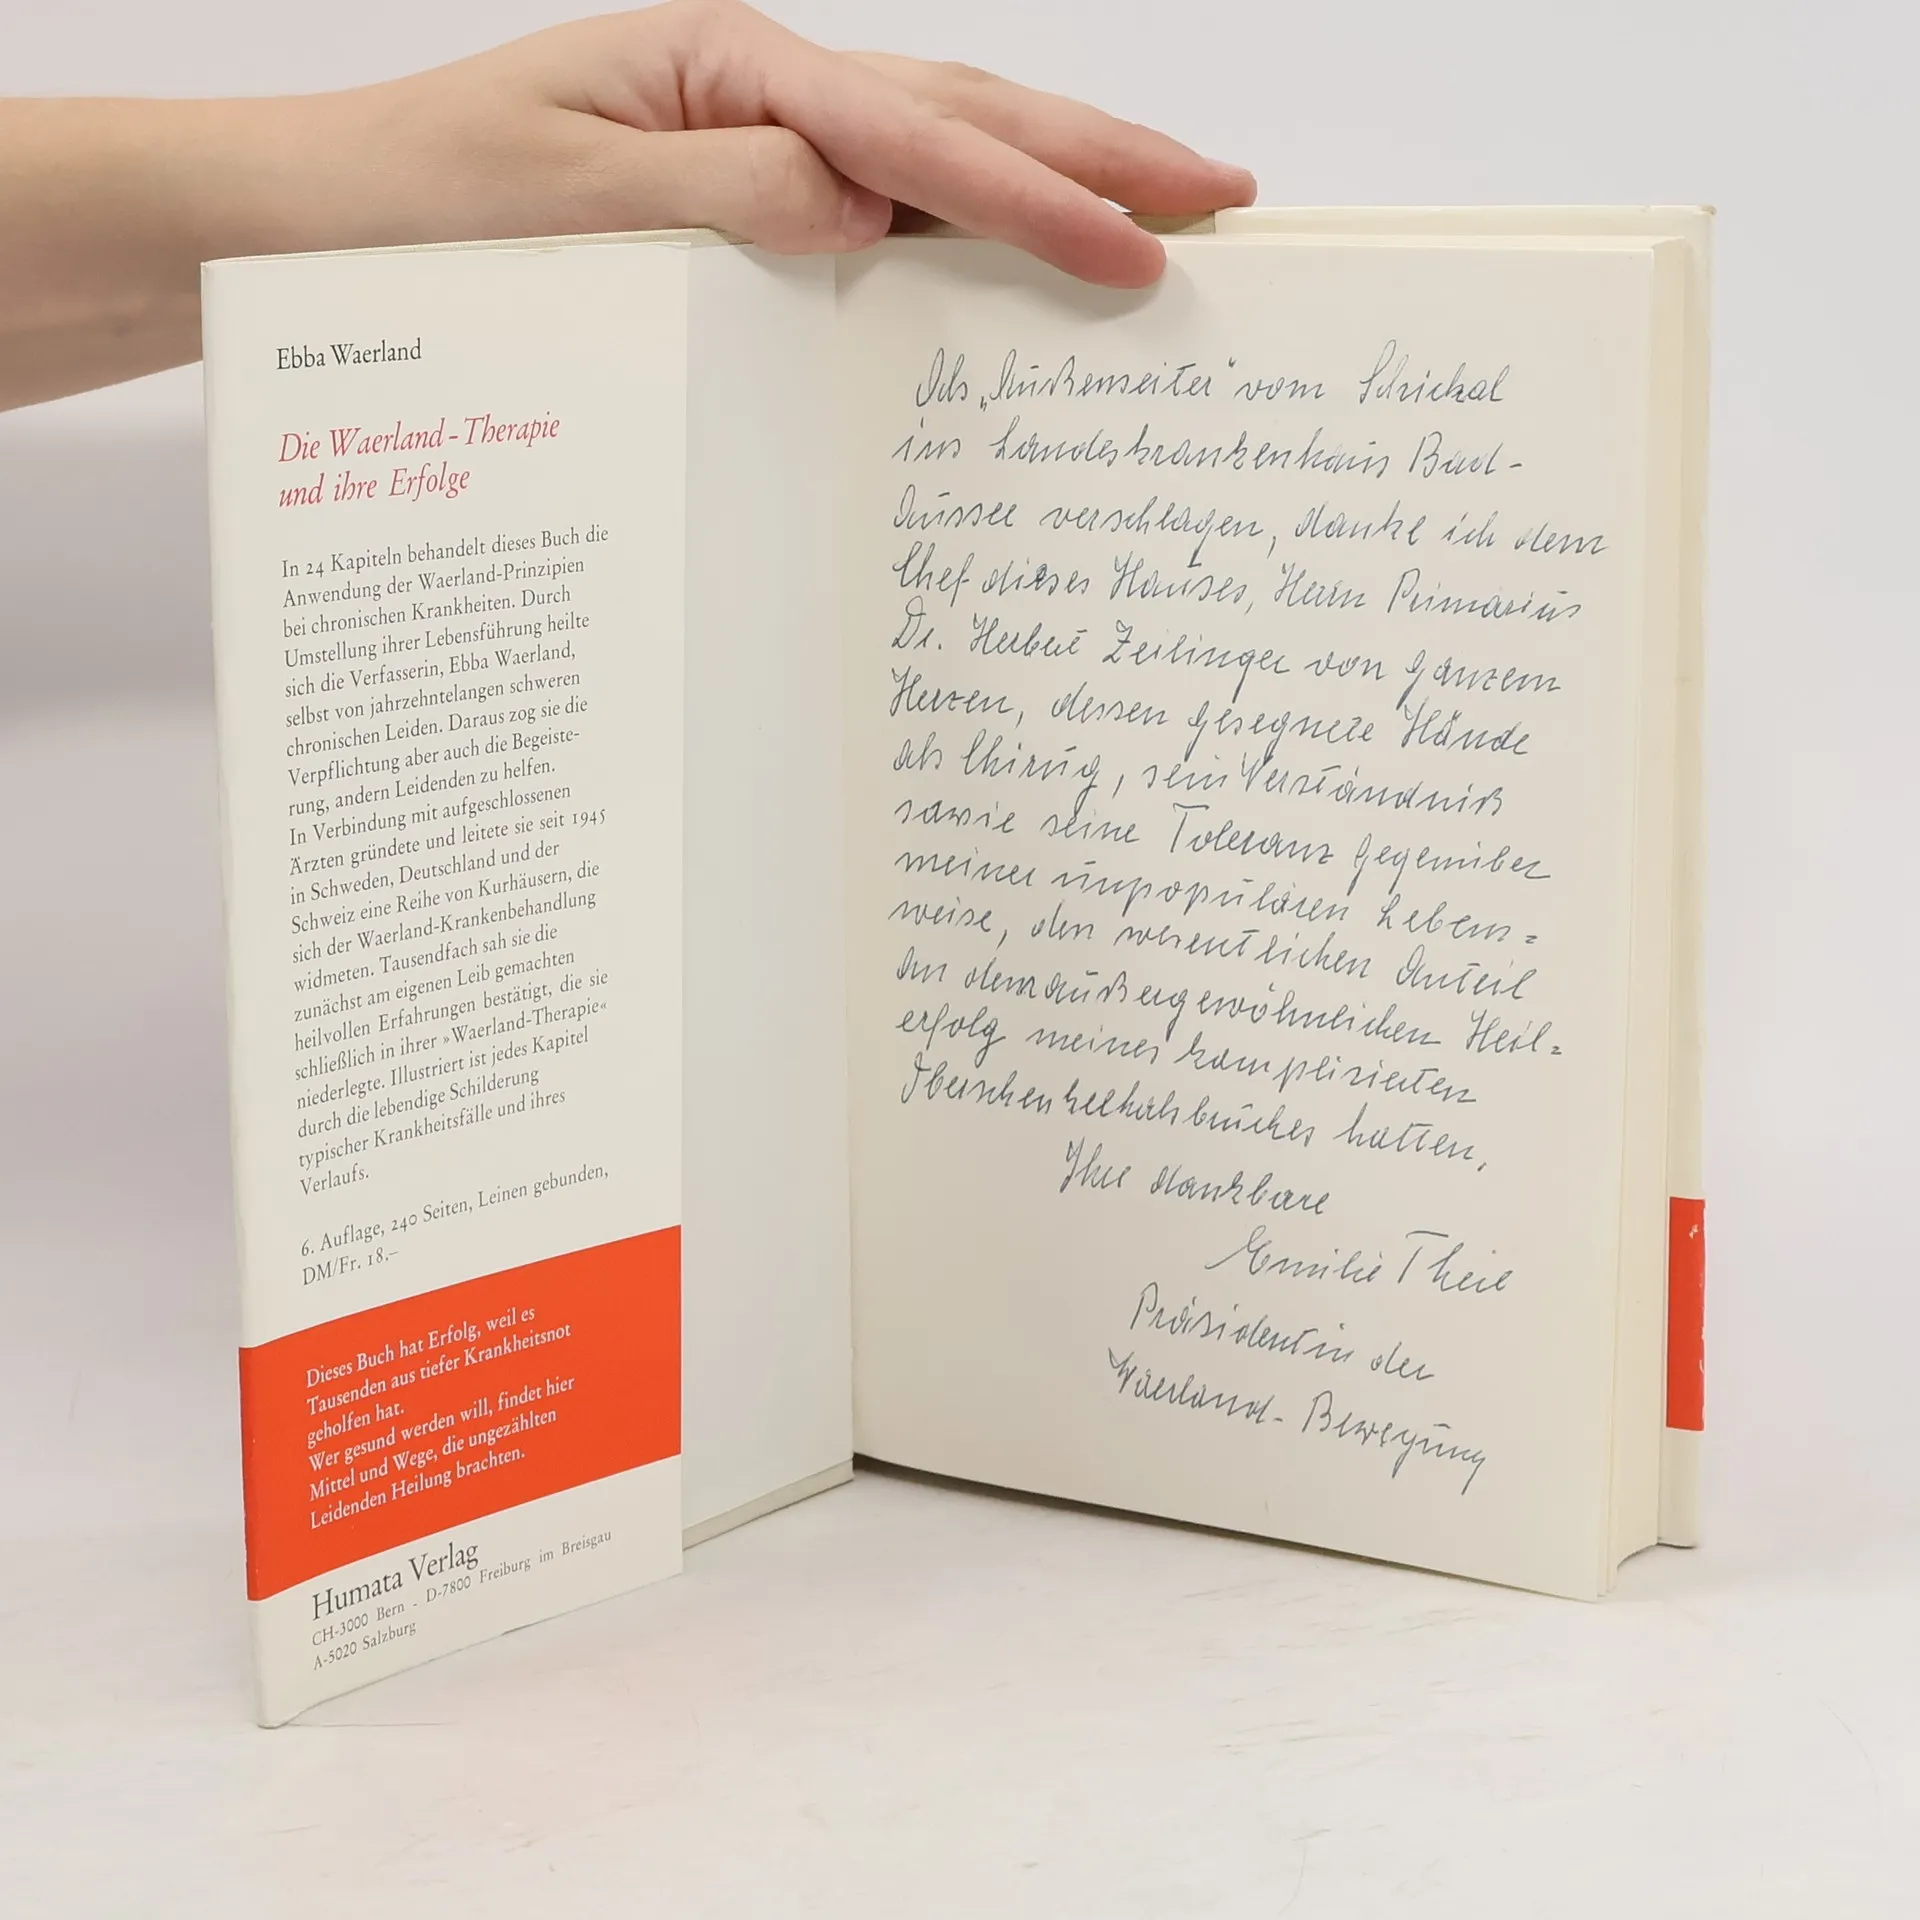 Ebba Waerland
Die Waerland-Therapie
und ihre Erfolge
In 24 Kapiteln behandelt dieses Buch die
Anwendung der Waerland-Prinzipien
bei chronischen Krankheiten. Durch
Umstellung ihrer Lebensführung heilte
sich die Verfasserin, Ebba Waerland,
selbst von jahrzehntelangen schweren
chronischen Leiden. Daraus zog sie die
Verpflichtung aber auch die Begeiste-
rung, andern Leidenden zu helfen.
In Verbindung mit aufgeschlossenen
Ärzten gründete und leitete sie seit 1945
in Schweden, Deutschland und der
Schweiz eine Reihe von Kurhäusern, die
sich der Waerland-Krankenbehandlung
widmeten. Tausendfach sah sie die
zunächst am eigenen Leib gemachten
heilvollen Erfahrungen bestätigt, die sie
schließlich in ihrer »Waerland-Therapie«
niederlegte. Illustriert ist jedes Kapitel
durch die lebendige Schilderung
typischer Krankheitsfälle und ihres
Verlaufs.
6. Auflage, 240 Seiten, Leinen gebunden,
DM/Fr. 18.–
Dieses Buch hat Erfolg, weil es
Tausenden aus tiefer Krankheitsnot
geholfen hat.
Wer gesund werden will, findet hier
Mittel und Wege, die ungezählten
Leidenden Heilung brachten.
Humata Verlag
CH-3000 Bern - D-7800 Freiburg im Breisgau
A-5020 Salzburg
Als „Außenseiter" vom Schicksal
ins Landeskrankenhaus Bad-
Aussee verschlagen, danke ich dem
Chef dieses Hauses, Herrn Primarius
Dr. Herbert Zeilinger von ganzem
Herzen, dessen gesegnete Hände
als Chirug, sein Verständniß
sowie seine Toleranz gegenüber
meiner unpopulären Lebens=
weise, den wesentlichen Anteil
an dem außergewöhnlichen Heil=
erfolg meines komplizierten
Oberschenkelhalsbruches hatten,
Ihre dankbare
Emilie Theil
Präsidentin der
Waerland-Bewegung